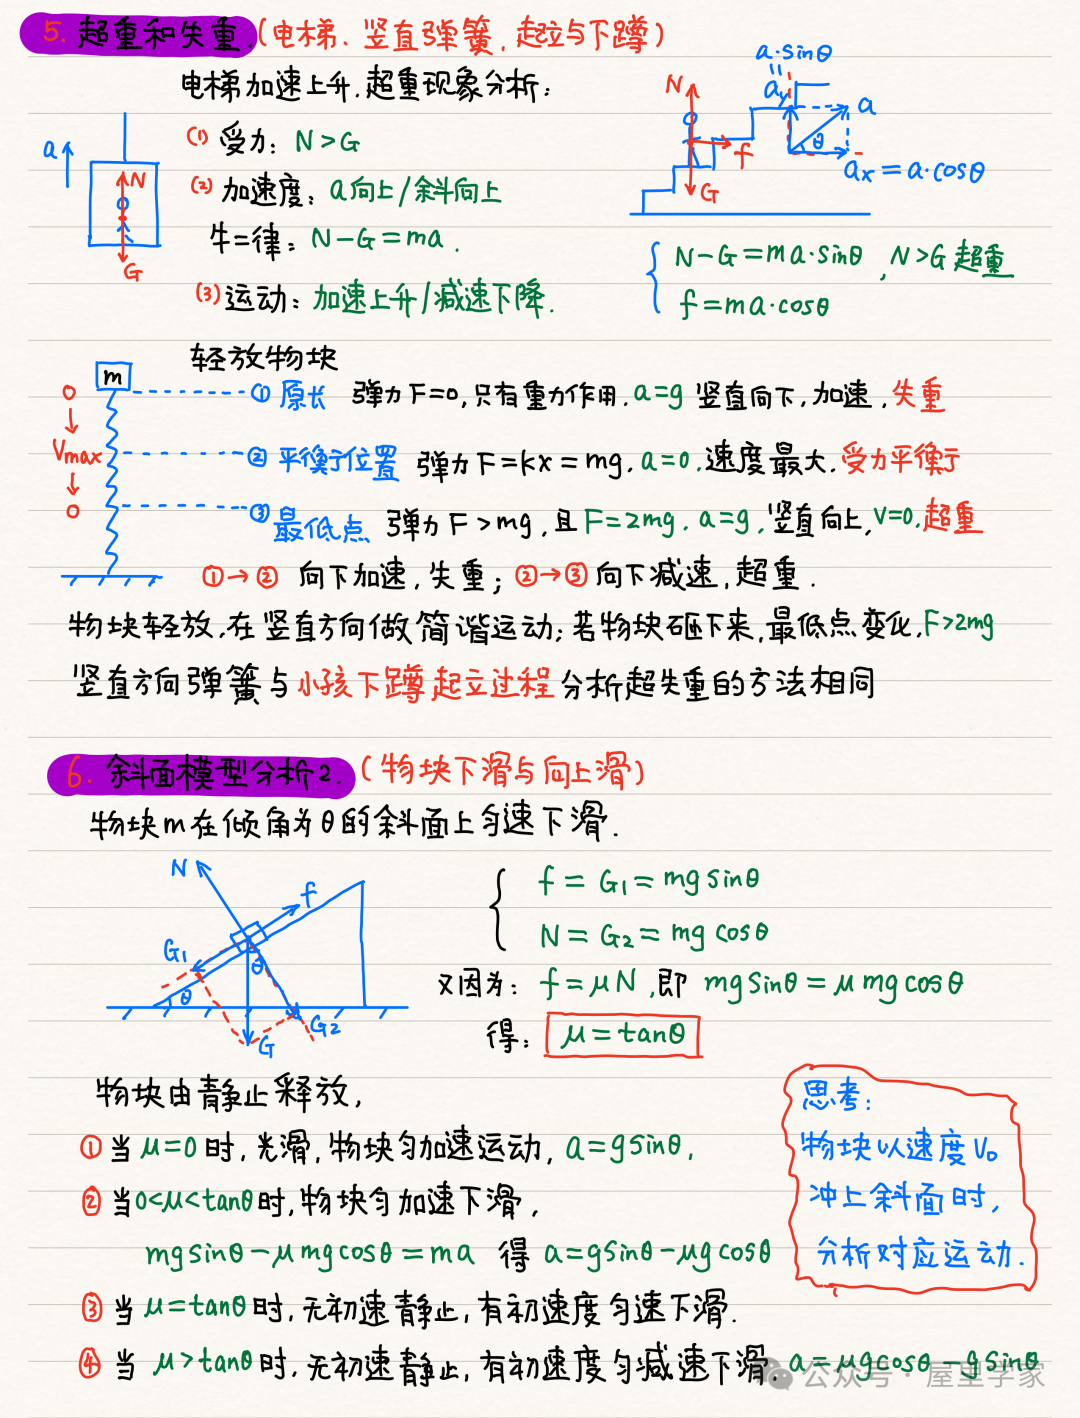 5. 超重和失重.(电梯、竖直弹簧,起立与下蹲)
电梯加速上升,超重现象分析:
(1) 受力: N>G
(2) 加速度: a向上/斜向上
牛二律: N-G=ma.
(3) 运动: 加速上升/减速下降.
a
N
G
N
f
G
a·sinθ
ay
a
θ
ax=a·cosθ
N-G=ma·sinθ, N>G 超重
f=ma·cosθ
轻放物块
m
0
Vmax
0
① 原长 弹力F=0,只有重力作用. a=g 竖直向下,加速,失重
② 平衡位置 弹力F=kx=mg, a=0,速度最大.受力平衡
③ 最低点 弹力F>mg,且F=2mg. a=g,竖直向上,V=0.超重
①→② 向下加速,失重; ②→③ 向下减速,超重.
物块轻放,在竖直方向做简谐运动;若物块砸下来,最低点变化,F>2mg
竖直方向弹簧与小孩下蹲起立过程分析超失重的方法相同
6. 斜面模型分析2.(物块下滑与向上滑)
物块m在倾角为θ的斜面上匀速下滑.
N
f
G1
θ
θ
G2
G
f=G1=mgsinθ
N=G2=mgcosθ
又因为: f=μN,即 mgsinθ=μmgcosθ
得: μ=tanθ
物块由静止释放,
①当μ=0时,光滑,物块匀加速运动, a=gsinθ,
②当0<μ<tanθ时,物块匀加速下滑,
mgsinθ-μmgcosθ=ma 得 a=gsinθ-μgcosθ
③当μ=tanθ时,无初速静止,有初速度匀速下滑.
④当 μ>tanθ时,无初速静止,有初速度匀减速下滑. a=μgcosθ-gsinθ
思考:
物块以速度V0
冲上斜面时,
分析对应运动.
公众号·屋里学家